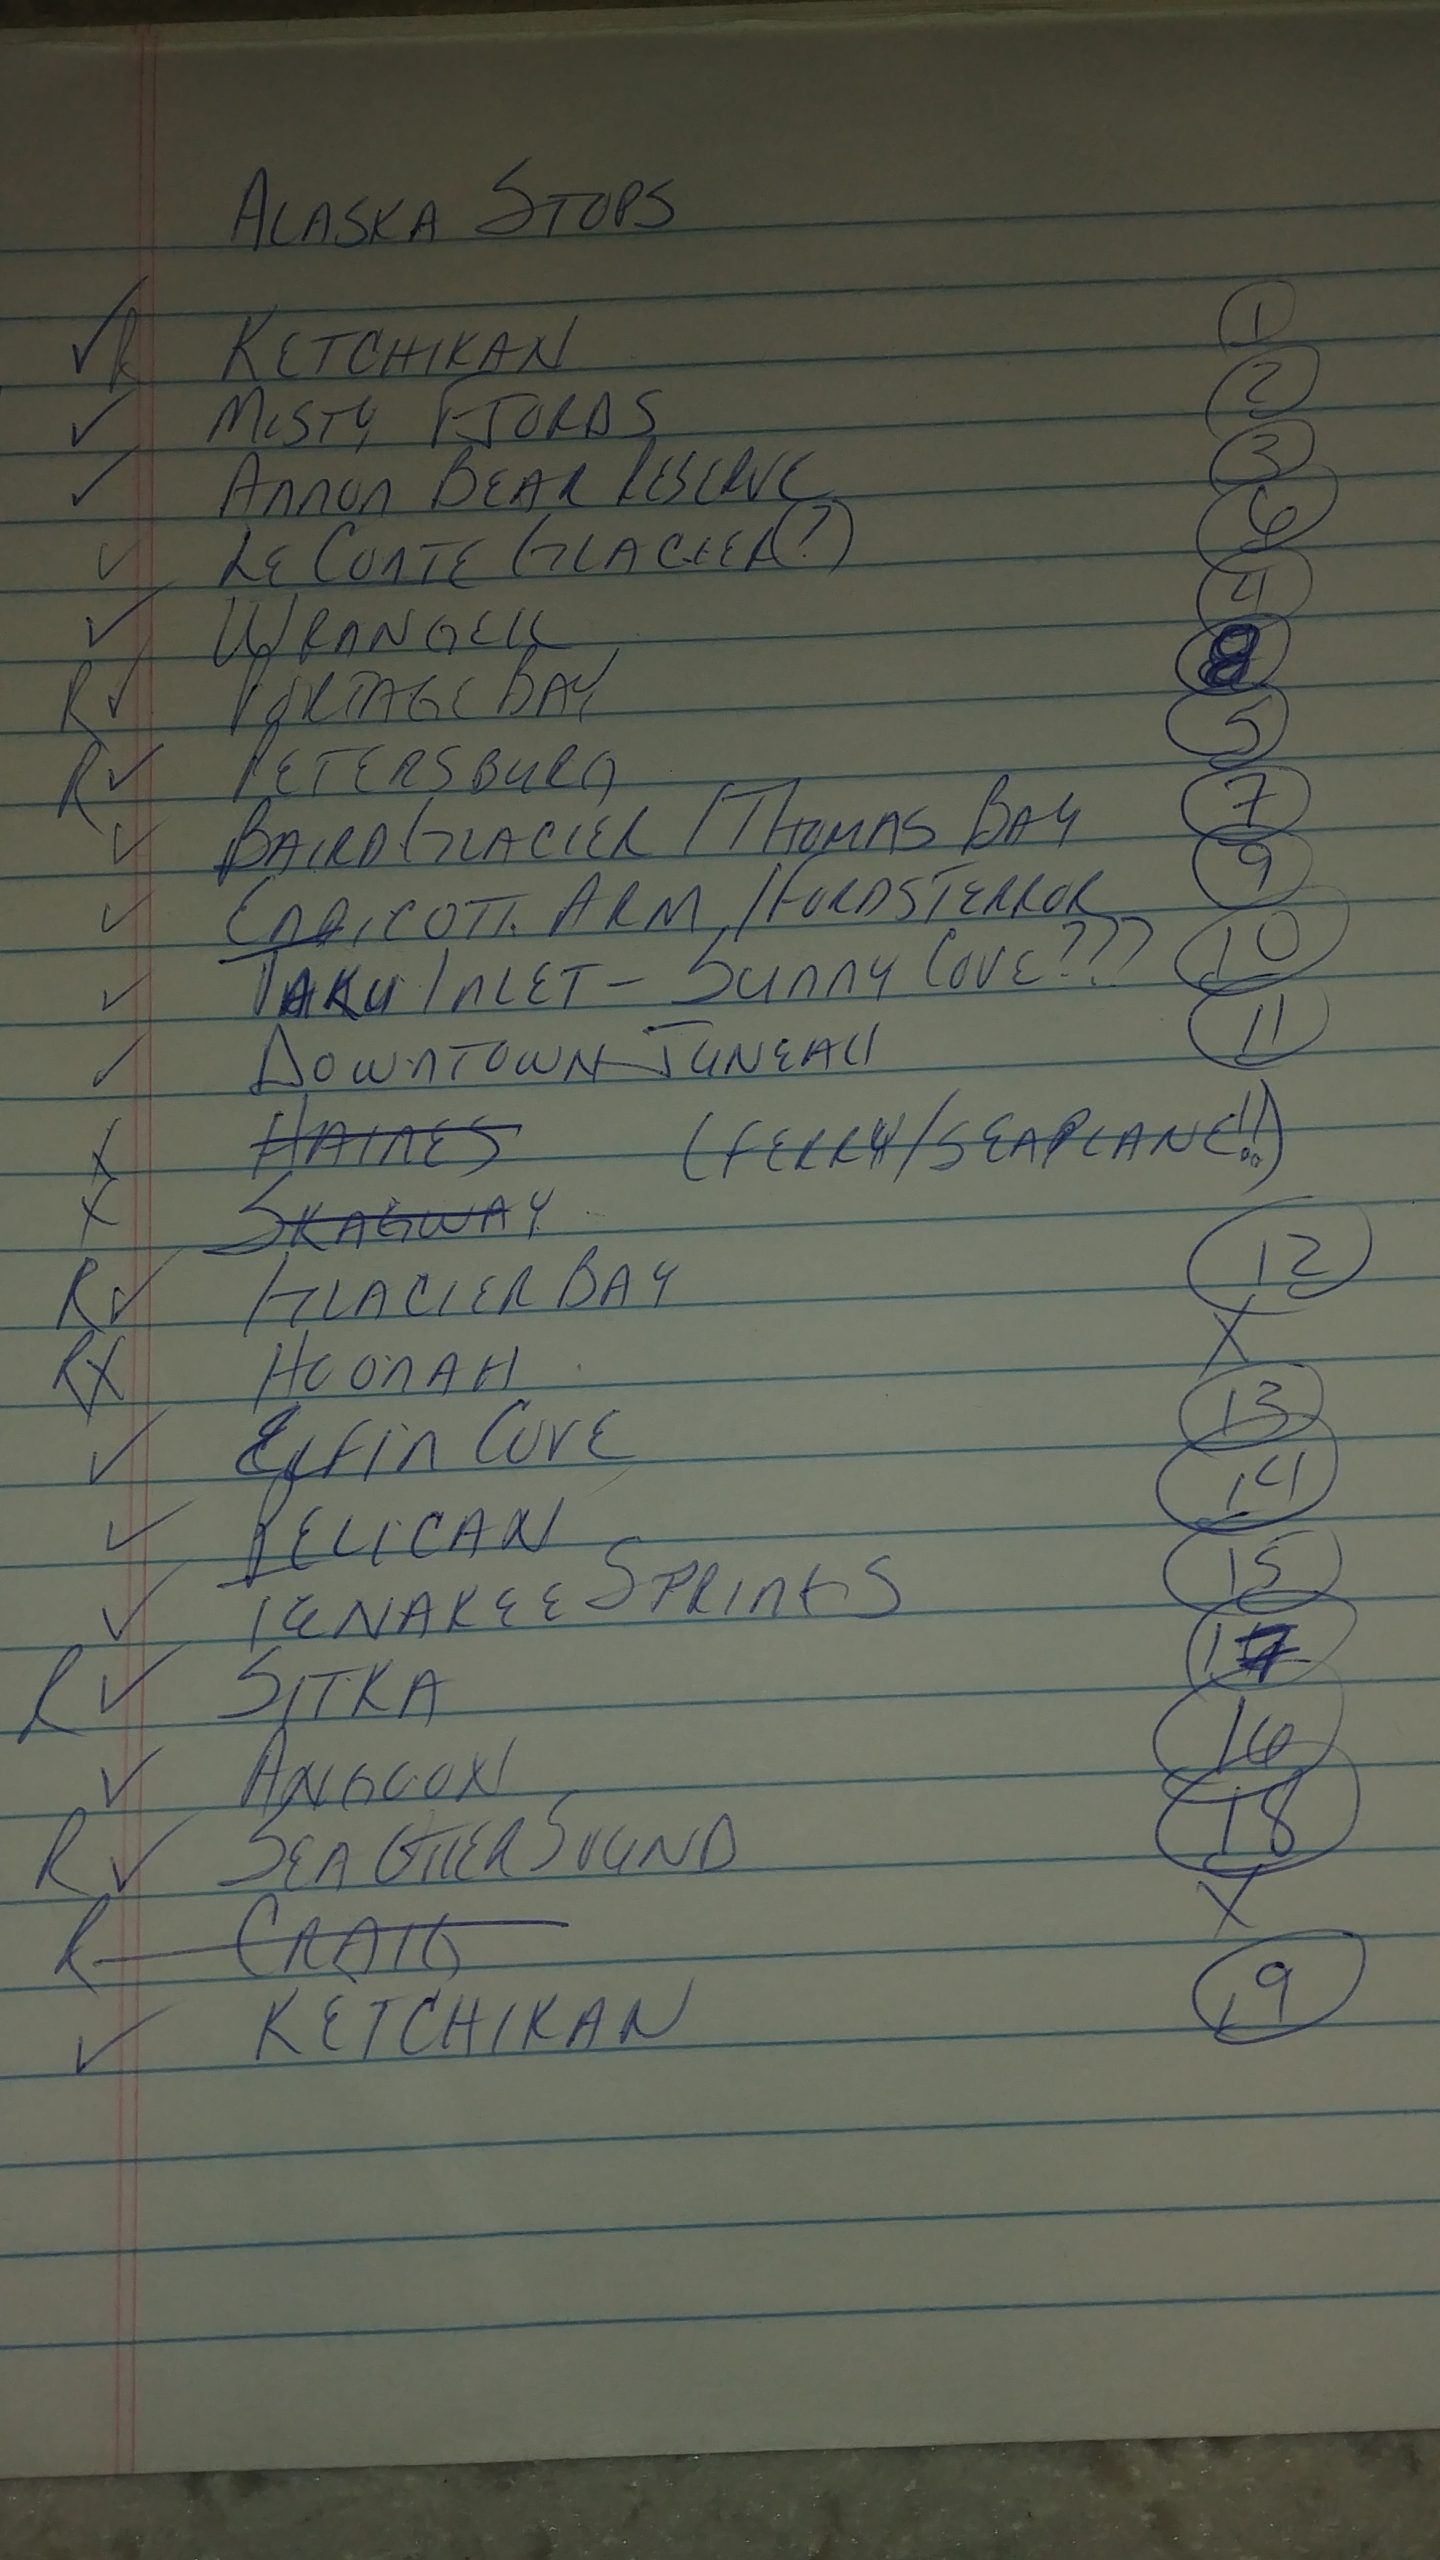 ALASKA STOPS
✓ R KETCHIKAN 1
✓ MISTY FJORDS 2
✓ ANNON BEAR RESERVE 3
✓ LE CONTE GLACIER(?) 6
✓ WRANGELL 4
R ✓ PORTAGE BAY 8
R ✓ PETERSBURG 5
✓ BAIRD GLACIER / THOMAS BAY 7
✓ ENDICOTT ARM / FORDS TERROR 9
✓ TAKU INLET - SUNNY COVE??? 10
✓ DOWNTOWN JUNEAU 11
X HAINES (FERRY/SEAPLANE!!)
X SKAGWAY
R ✓ GLACIER BAY 12
R X HOONAH X
✓ ELFIN COVE 13
✓ PELICAN 14
✓ TENAKEE SPRINGS 15
R ✓ SITKA 17
✓ ANGOON 16
R ✓ SEA OTTER SOUND 18
R CRAIG X
✓ KETCHIKAN 19